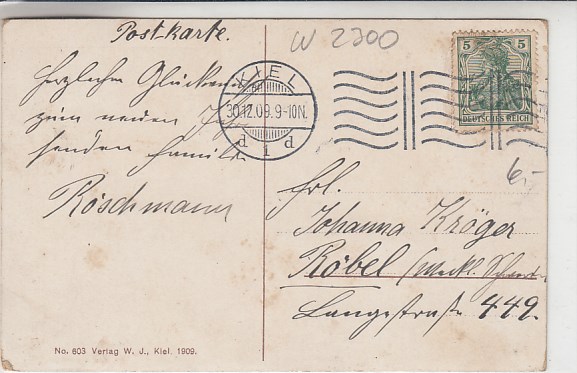 Postkarte.
W 2300
5 5
DEUTSCHES REICH
KIEL
30.12.09.9-10N.
d 1 d
Herzlichen Glückwu
zum neuen
senden Familie
Röschmann
6,-
Frl.
Johanna Kröger
Röbel (Meckl. Schwerin
Langestraße 449.
No. 603 Verlag W. J., Kiel. 1909.